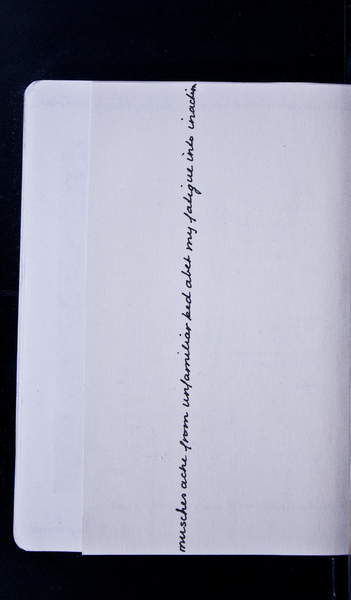 muscles ache from unfamiliar bed abet my fatigue into inactin